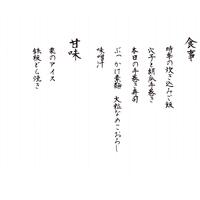 食事
時季の炊き込みご飯
穴子と胡瓜手巻き
本日の手巻き寿司
ぶっかけ素麺 大粒なめこおろし
味噌汁
甘味
最中のアイス
鉄板どら焼き